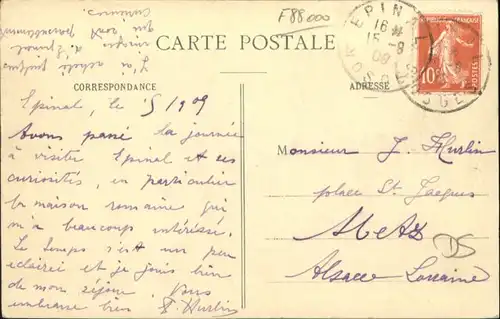 J'ai acheté quelques
vues d'Epinal
qui sont
F88000
CARTE POSTALE
CORRESPONDANCE
ADRESSE
EPINAL
16
15-8
09
VOSGES
RÉPUBLIQUE FRANÇAISE
10
POSTES
Epinal, le 1909
Avons passé la journée
à visiter Epinal et ses
curiosités, en particulier
la maison romaine qui
m'a beaucoup intéressé.
Le temps s'est un peu
eclairci et je jouis bien
de mon séjour. Vous
embrasse bien Hurlin
Monsieur J. Hurlin
place St. Jacques
Metz
Alsace Lorraine
DS